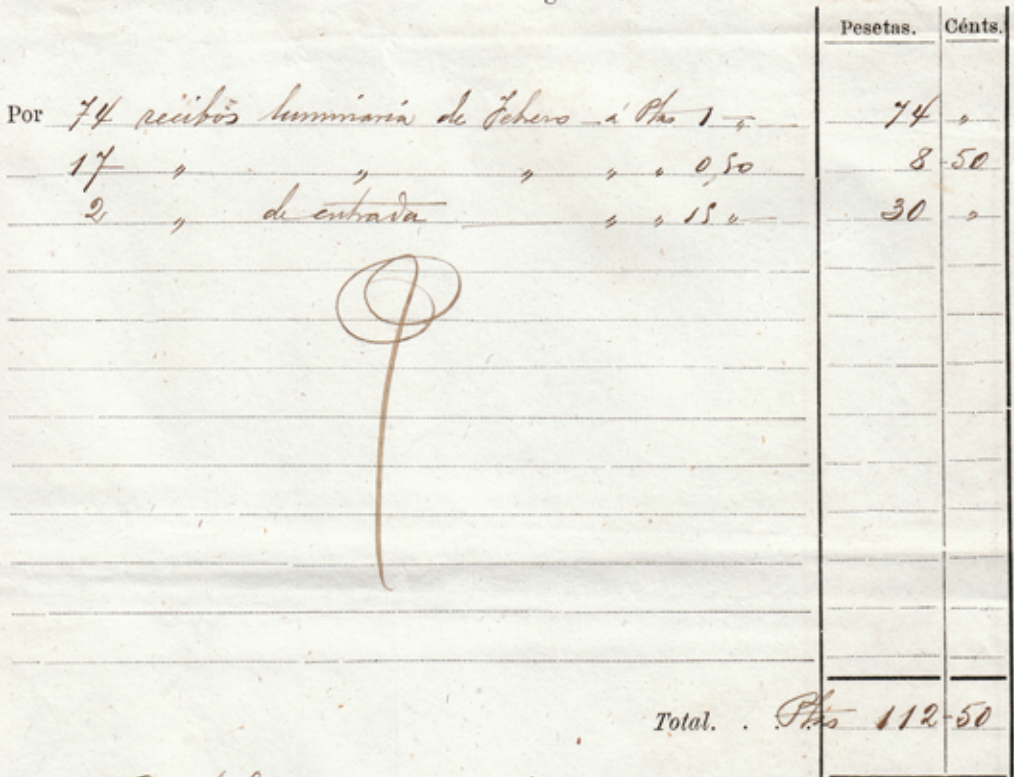 Pesetas. Cénts.
Por 74 recibos luminaria de Febero á Ptas 1 „ 74 „
17 „ „ „ „ „ 0,50 8 50
2 „ de entrada „ „ 15 „ 30 „
Total. . . Ptas 112-50